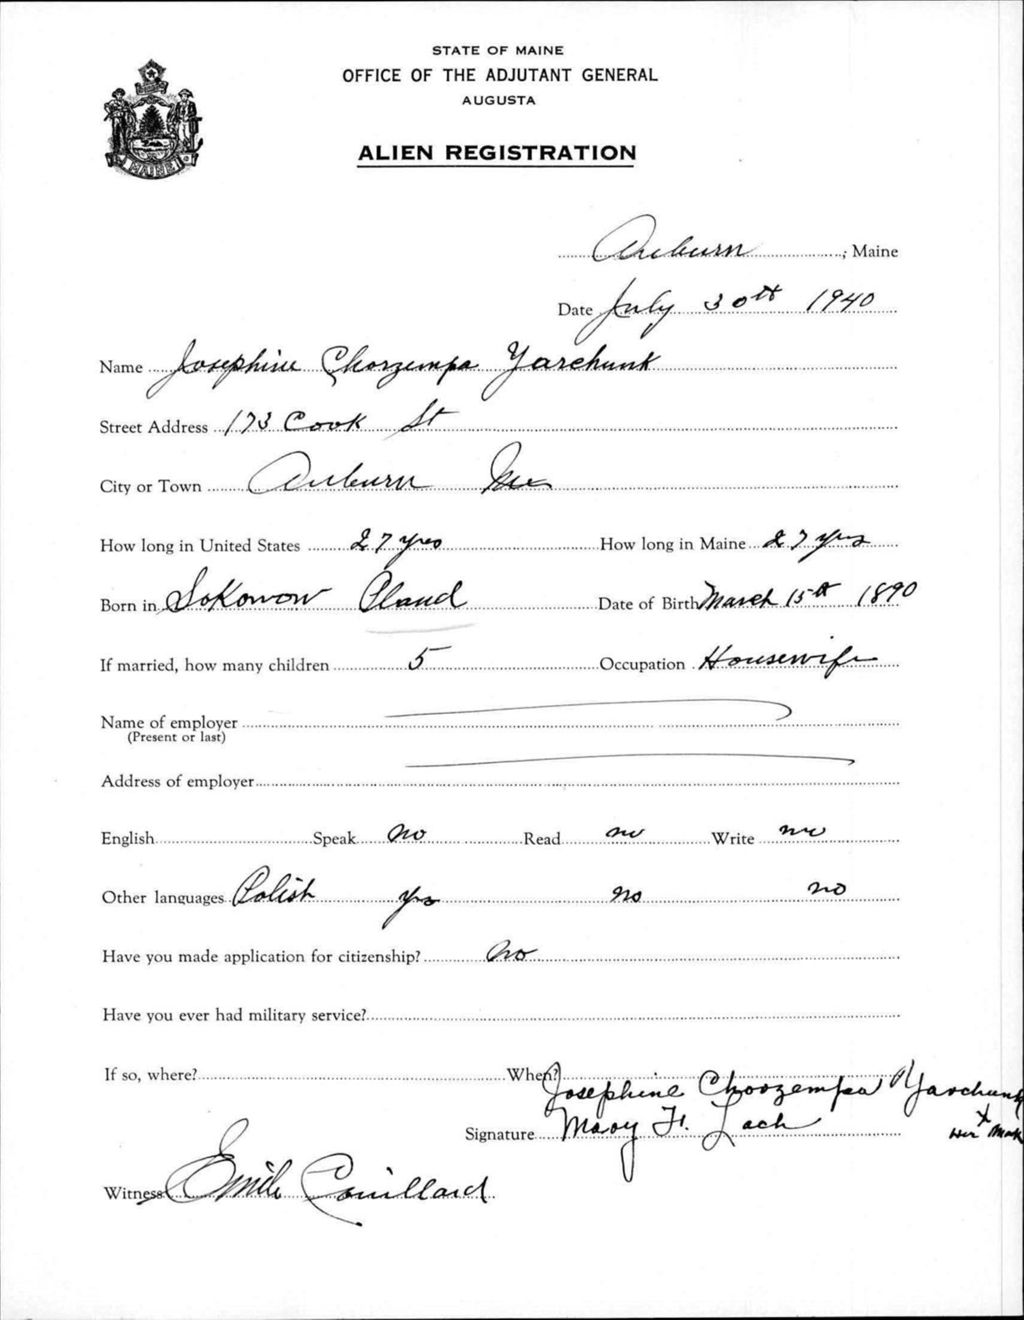 STATE OF MAINE
OFFICE OF THE ADJUTANT GENERAL
AUGUSTA
ALIEN REGISTRATION
MAINE
Auburn, Maine
Date July 30th 1940
Name Josephine Chorzempa Yarchunk
Street Address 173 Cook St
City or Town Auburn Me
How long in United States 27 yrs How long in Maine 27 yrs
Born in Sokowow Pland Date of Birth March 15th 1890
If married, how many children 5 Occupation Housewife
Name of employer
(Present or last)
Address of employer
English Speak No Read no Write no
Other languages Polish yes no no
Have you made application for citizenship? No
Have you ever had military service?
If so, where? When?
Josephine Chorzempa Yarchunk
X
Her Mark
Signature Mary H. Lach
Witness Emile Couillard